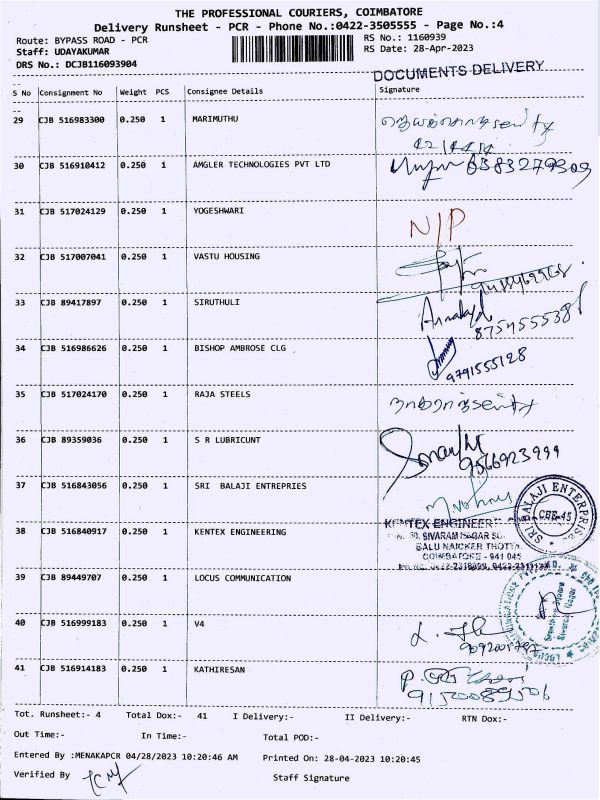 THE PROFESSIONAL COURIERS, COIMBATORE
Delivery Runsheet - PCR - Phone No.:0422-3505555 - Page No.:4
Route: BYPASS ROAD - PCR RS No.: 1160939
Staff: UDAYAKUMAR RS Date: 28-Apr-2023
DRS No.: DCJB116093904
DOCUMENTS DELIVERY
S No Consignment No Weight PCS Consignee Details Signature
29 CJB 516983300 0.250 1 MARIMUTHU
30 CJB 516910412 0.250 1 AMGLER TECHNOLOGIES PVT LTD 6383279309
31 CJB 517024129 0.250 1 YOGESHWARI N/P
32 CJB 517007041 0.250 1 VASTU HOUSING
33 CJB 89417897 0.250 1 SIRUTHULI
34 CJB 516986626 0.250 1 BISHOP AMBROSE CLG 9791555128
35 CJB 517024170 0.250 1 RAJA STEELS
36 CJB 89359036 0.250 1 S R LUBRICUNT 9566923999
37 CJB 516843056 0.250 1 SRI BALAJI ENTREPRIES
SRI BALAJI ENTERPRISES CBE-45
38 CJB 516840917 0.250 1 KENTEX ENGINEERING
KENTEX ENGINEER
50, SIVARAM NAGAR
BALU NAICKER THOTTAM
COIMBATORE - 641 045
39 CJB 89449707 0.250 1 LOCUS COMMUNICATION
40 CJB 516999183 0.250 1 V4
41 CJB 516914183 0.250 1 KATHIRESAN
Tot. Runsheet:- 4 Total Dox:- 41 I Delivery:- II Delivery:- RTN Dox:-
Out Time:- In Time:- Total POD:-
Entered By :MENAKAPCR 04/28/2023 10:20:46 AM Printed On: 28-04-2023 10:20:45
Verified By Staff Signature